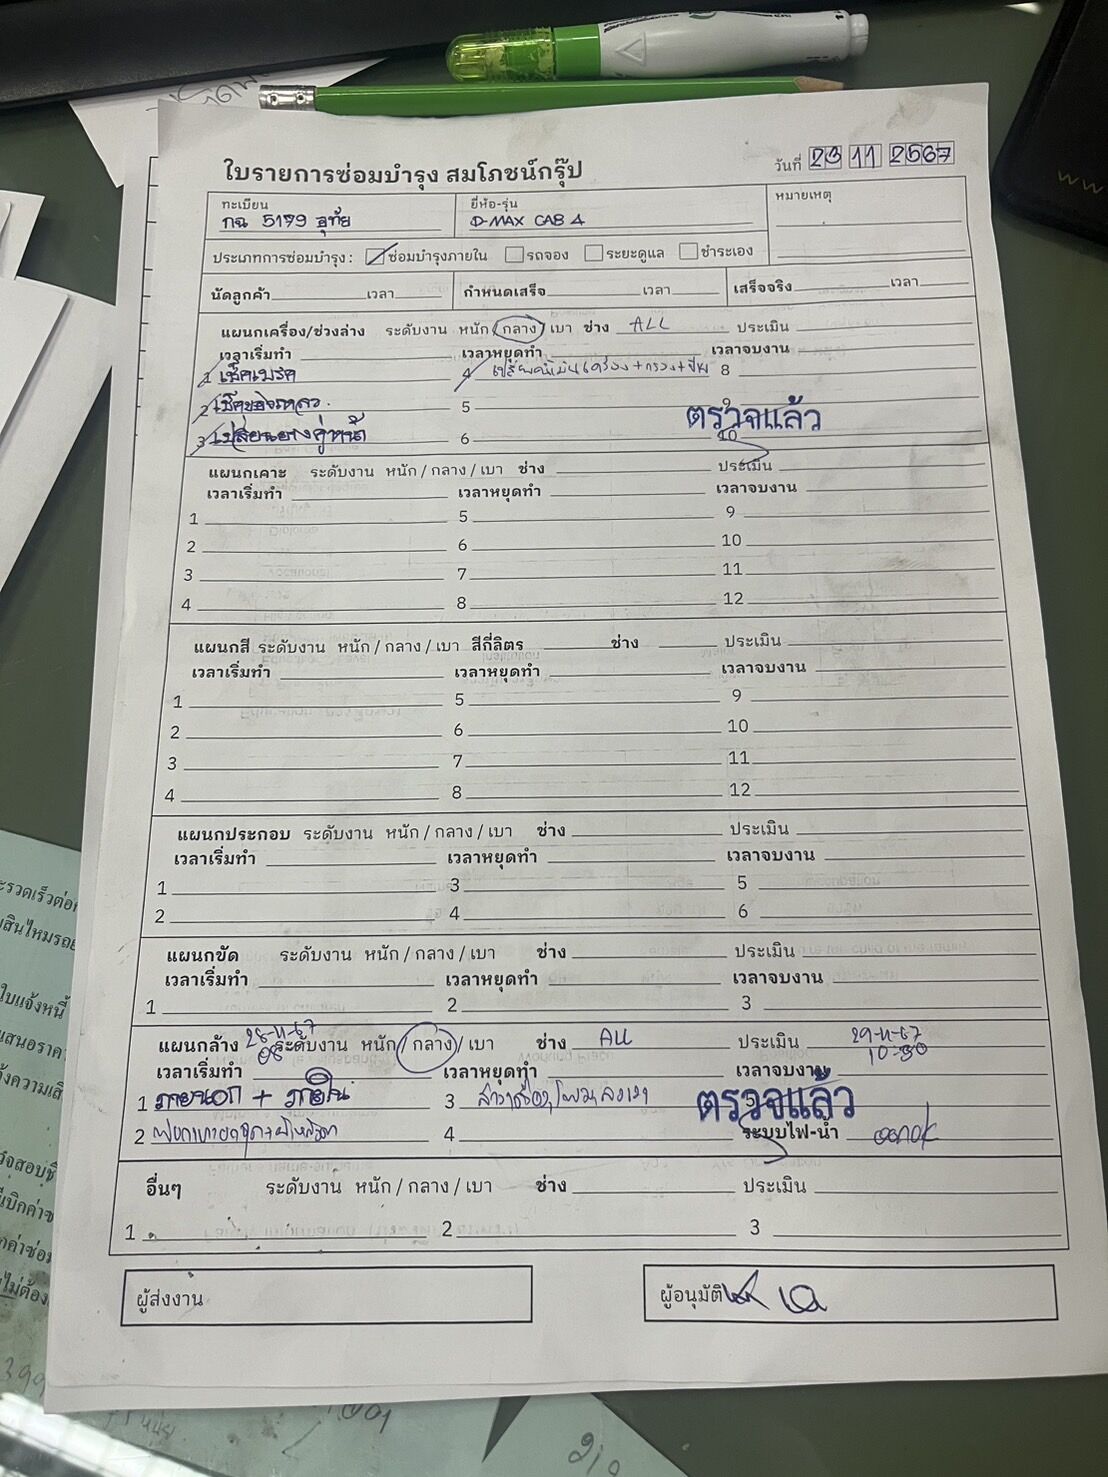 ใบรายการซ่อมบำรุง สมโภชน์กรุ๊ป
วันที่ 23 11 2567
ทะเบียน ยี่ห้อ-รุ่น หมายเหตุ
กฉ 5179 อุทัย D-MAX CAB 4
ประเภทการซ่อมบำรุง: ซ่อมบำรุงภายใน รถจอง ระยะดูแล ชำระเอง
นัดลูกค้า เวลา กำหนดเสร็จ เวลา เสร็จจริง เวลา
แผนกเครื่อง/ช่วงล่าง ระดับงาน หนัก/กลาง/เบา ช่าง ALL ประเมิน
เวลาเริ่มทำ เวลาหยุดทำ เวลาจบงาน
1 เช็คเบรค 4 เปลี่ยนน้ำมันเครื่อง+กรอง+ 8
2 เช็คของเหลว 5 9
3 เปลี่ยนยางคู่หน้า 6 10
ตรวจแล้ว
แผนกเคาะ ระดับงาน หนัก/กลาง/เบา ช่าง ประเมิน
เวลาเริ่มทำ เวลาหยุดทำ เวลาจบงาน
1 5 9
2 6 10
3 7 11
4 8 12
แผนกสี ระดับงาน หนัก/กลาง/เบา สีกี่ลิตร ช่าง ประเมิน
เวลาเริ่มทำ เวลาหยุดทำ เวลาจบงาน
1 5 9
2 6 10
3 7 11
4 8 12
แผนกประกอบ ระดับงาน หนัก/กลาง/เบา ช่าง ประเมิน
เวลาเริ่มทำ เวลาหยุดทำ เวลาจบงาน
1 3 5
2 4 6
แผนกขัด ระดับงาน หนัก/กลาง/เบา ช่าง ประเมิน
เวลาเริ่มทำ เวลาหยุดทำ เวลาจบงาน
1 2 3
28-11-67 29-11-67
แผนกล้าง ระดับงาน หนัก/กลาง/เบา ช่าง ALL ประเมิน
เวลาเริ่มทำ เวลาหยุดทำ เวลาจบงาน
1 ภายนอก + ภายใน 3 5
ตรวจแล้ว
2 4 ระบบไฟ-น้ำ
อื่นๆ ระดับงาน หนัก/กลาง/เบา ช่าง ประเมิน
1 2 3
ผู้ส่งงาน ผู้อนุมัติ